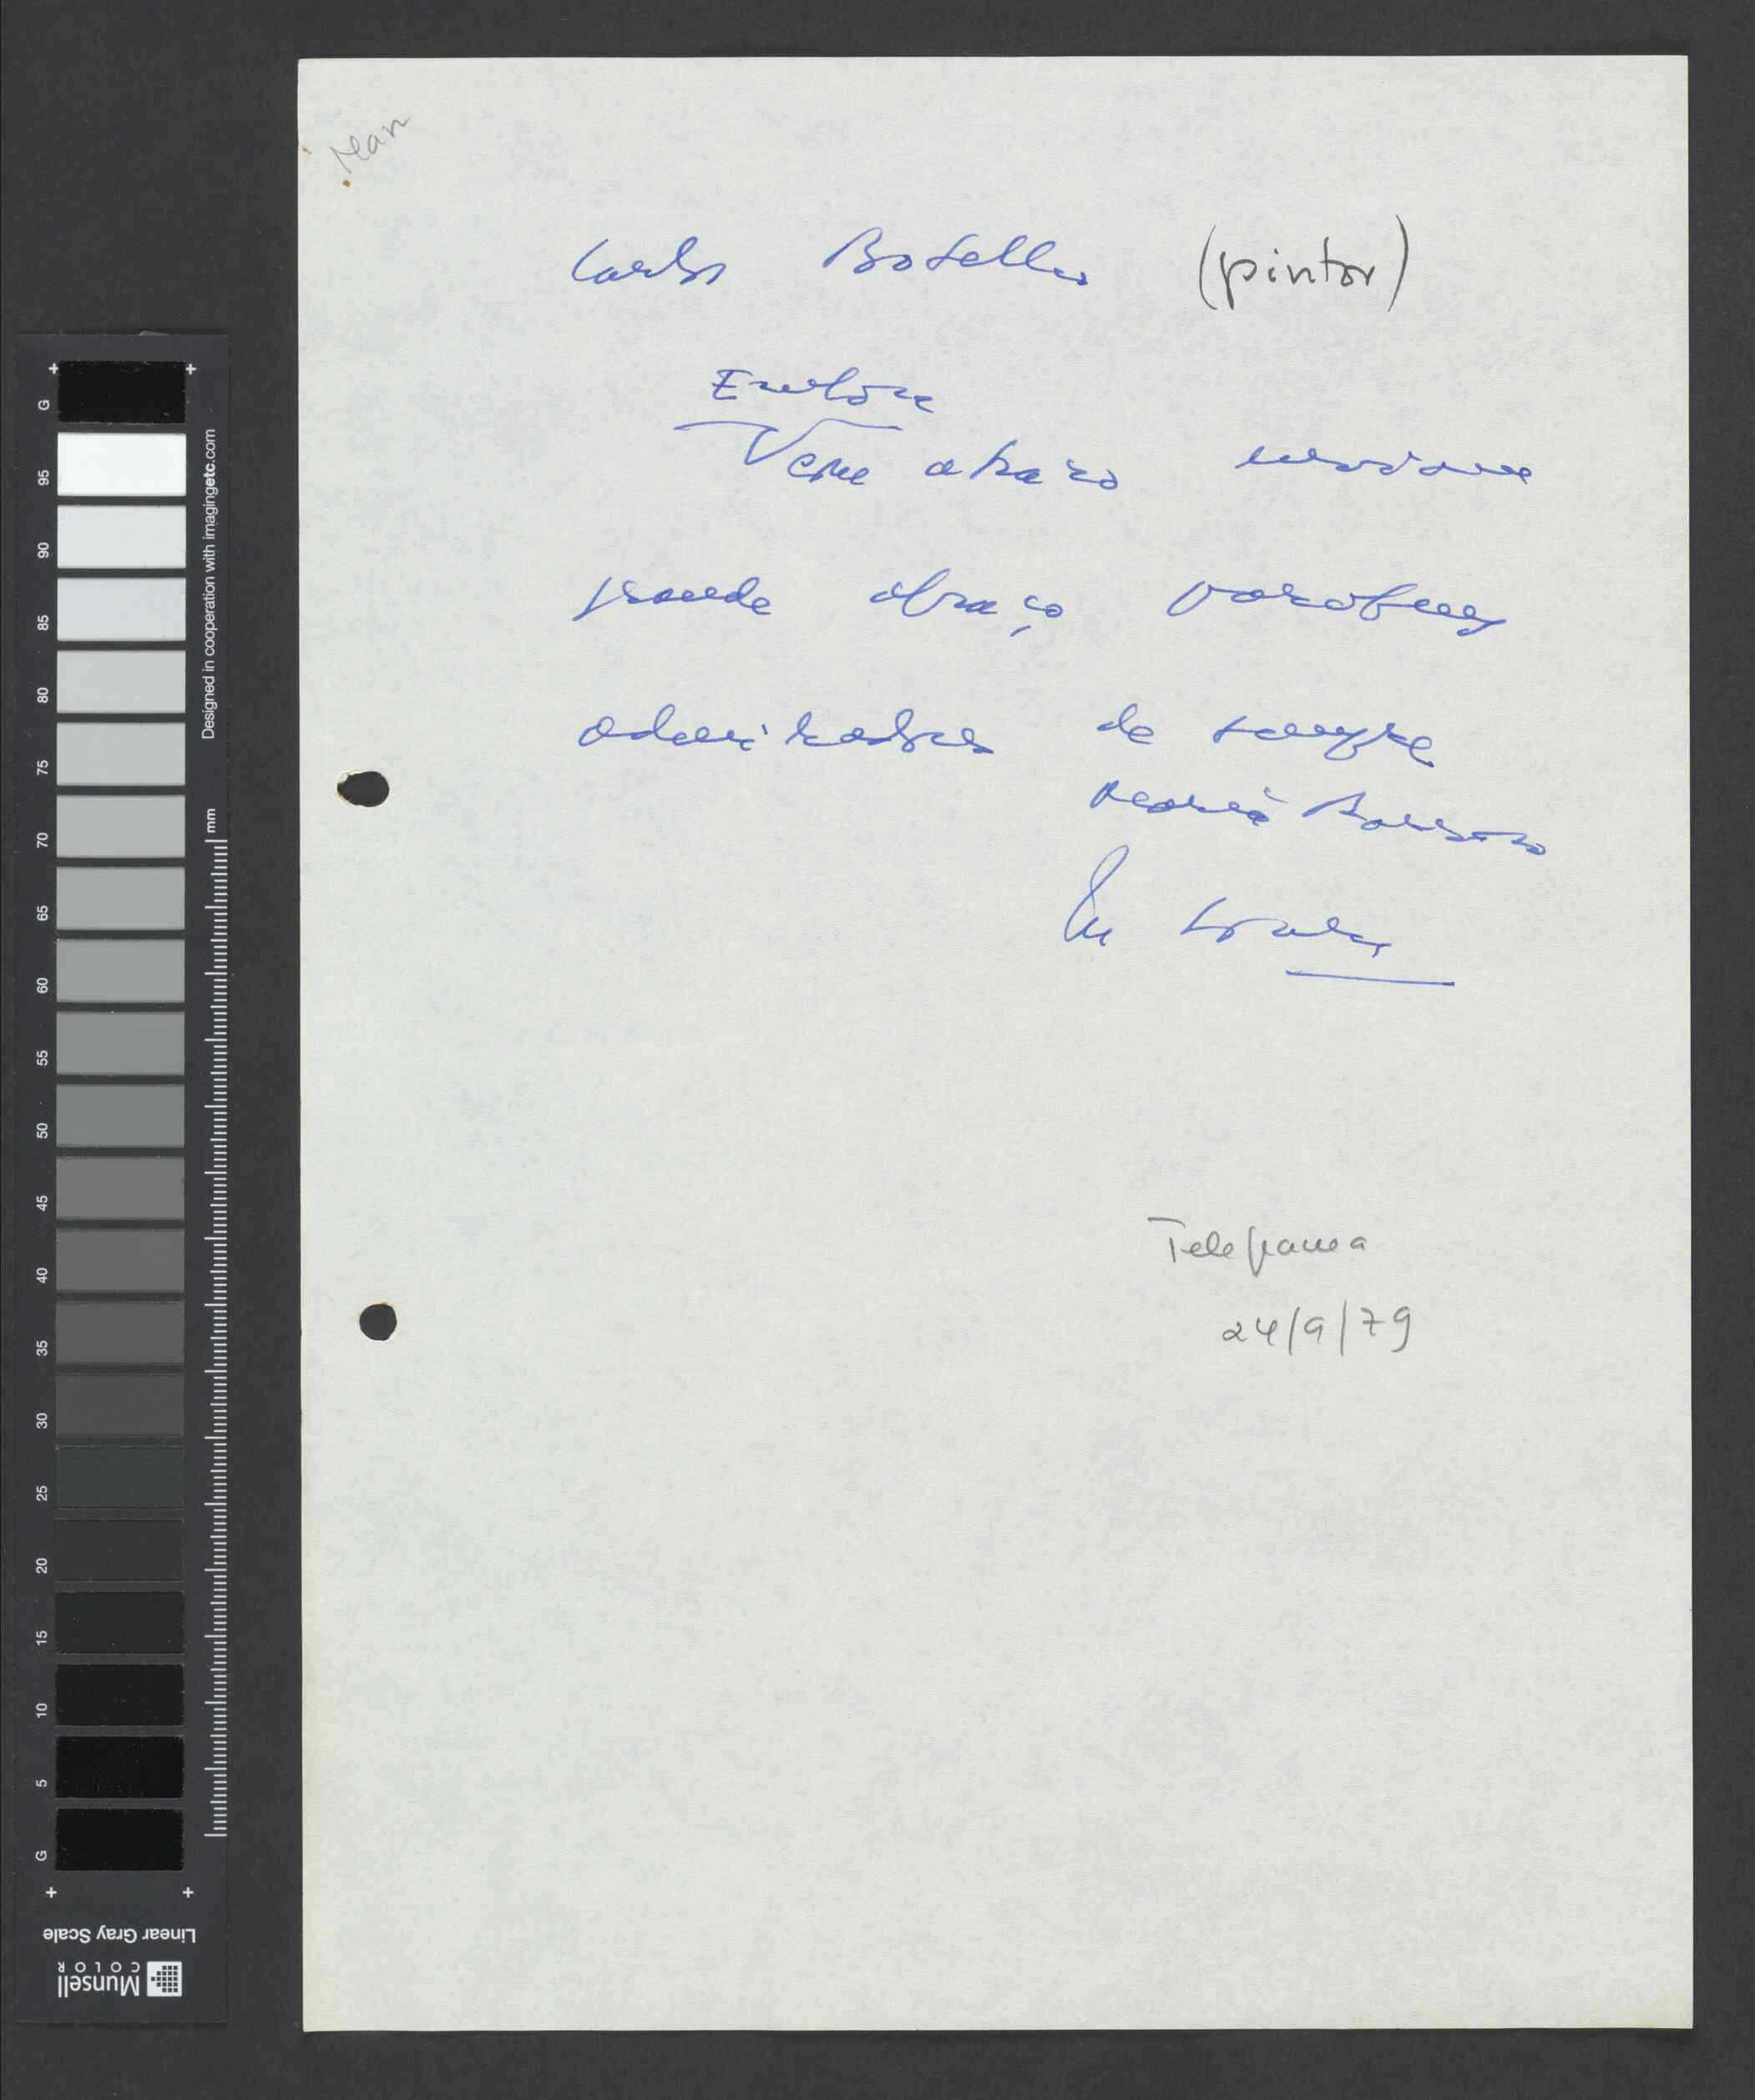 Carlos Botelho (pintor)
Vem atraso
grande abraço parabens
admiradores de sempre
Maria Barroso
Telegrama
24/9/79
G
95
90
85
80
75
70
65
60
55
50
45
40
35
30
25
20
15
10
5
G
mm
Designed in cooperation with imagingetc.com
Linear Gray Scale
Munsell
COLOR